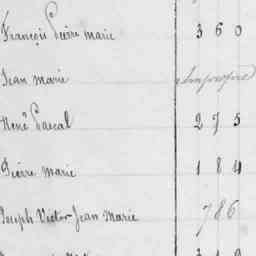 François Pierre marie 360
Jean marie
René Pascal 275
Pierre marie 184
Joseph Victor Jean Marie 786